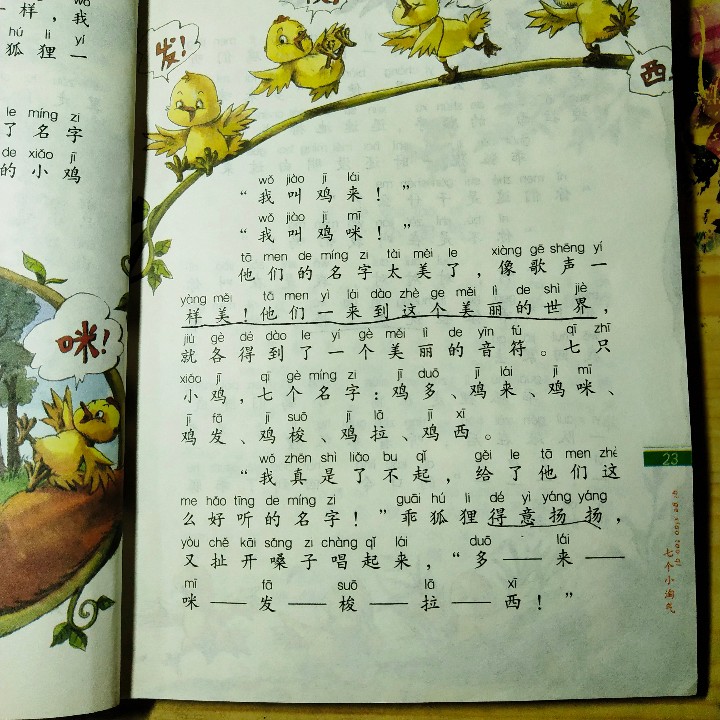 wǒ
样，我
hú li yí
狐狸一
le míng zi
了名字
de xiǎo jī
的小鸡
咪！
发！
西
wǒ jiào jī lái
“我叫鸡来！”
wǒ jiào jī mī
“我叫鸡咪！”
tā men de míng zi tài měi le xiàng gē shēng yí
他们的名字太美了，像歌声一
yàng měi tā men yì lái dào zhè ge měi lì de shì jiè
样美！他们一来到这个美丽的世界，
jiù gè dé dào le yí gè měi lì de yīn fú qī zhī
就各得到了一个美丽的音符。七只
xiǎo jī qī gè míng zi jī duō jī lái jī mī
小鸡，七个名字：鸡多、鸡来、鸡咪、
jī fā jī suō jī lā jī xī
鸡发、鸡梭、鸡拉、鸡西。
wǒ zhēn shì liǎo bu qǐ gěi le tā men zhè
“我真是了不起，给了他们这
me hǎo tīng de míng zi guāi hú li dé yì yáng yáng
么好听的名字！”乖狐狸得意扬扬，
yòu chě kāi sǎng zi chàng qǐ lái duō lái
又扯开嗓子唱起来，“多——来——
mī fā suō lā xī
咪——发——梭——拉——西！”
23
qī ge xiǎo táo qì
七个小淘气